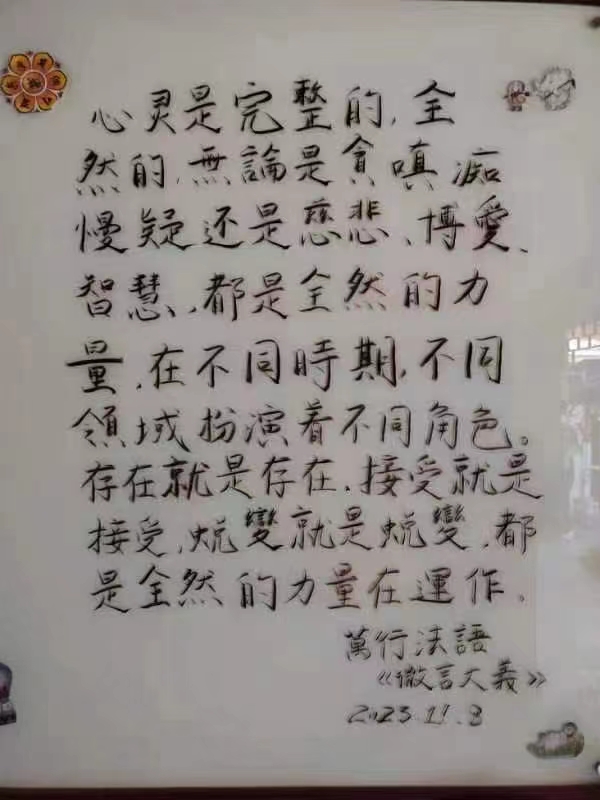 心灵是完整的,全
然的,無論是貪嗔痴
慢疑还是慈悲、博愛、
智慧,都是全然的力
量,在不同時期,不同
領域扮演着不同角色。
存在就是存在,接受就是
接受,蜕變就是蜕變,都
是全然的力量在運作。
萬行法語
《微言大義》
2023.11.3